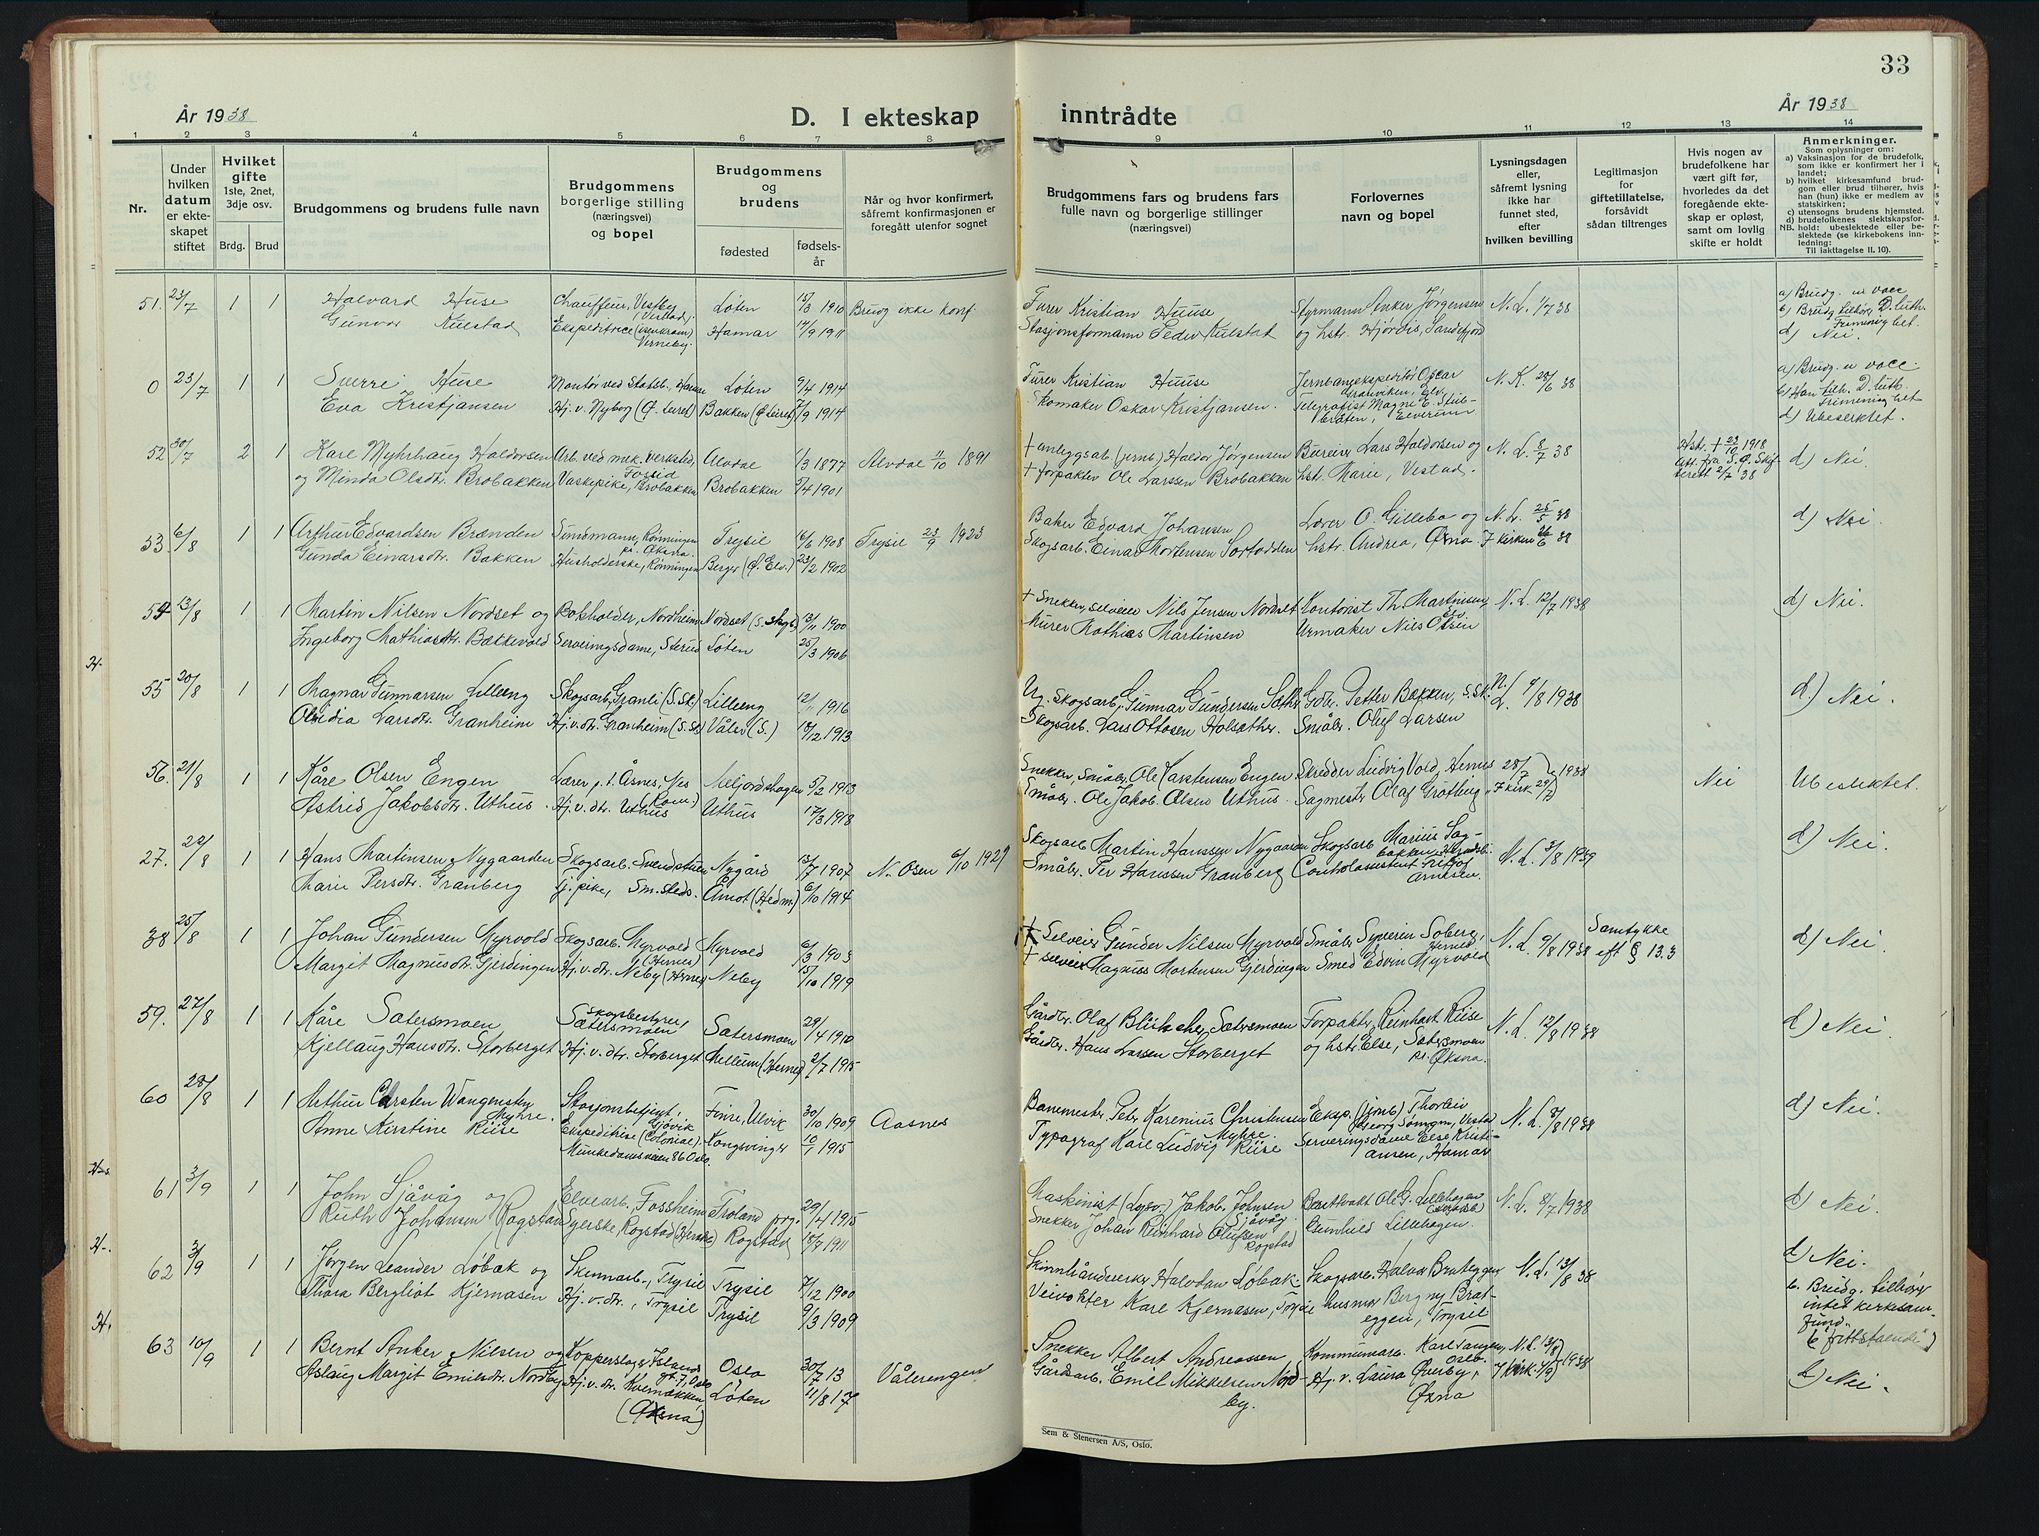 33
År 1938
D. I ekteskap
inntrådte
År 1938
1 2 3 4 5 6 7 8 9 10 11 12 13 14
Nr.
Under hvilken datum er ekteskapet stiftet
Hvilket gifte
1ste, 2net, 3dje osv.
Brdg. Brud
Brudgommens og brudens fulle navn
Brudgommens borgerlige stilling (næringsvei) og bopel
Brudgommens og brudens
fødested
fødselsår
Når og hvor konfirmert, såfremt konfirmasjonen er foregått utenfor sognet
Brudgommens fars og brudens fars fulle navn og borgerlige stillinger (næringsvei)
Forlovernes navn og bopel
Lysningsdagen eller, såfremt lysning ikke har funnet sted, efter hvilken bevilling
Legitimasjon for giftetillatelse, forsåvidt sådan tiltrenges
Hvis nogen av brudefolkene har vært gift før, hvorledes da det foregående ekteskap er opløst, samt om lovlig skifte er holdt
Anmerkninger.
Som oplysninger om:
a) Vaksinasjon for de brudefolk, som ikke er konfirmert her i landet;
b) hvilket kirkesamfund brudgom eller brud tilhører, hvis han (hun) ikke er medlem av statskirken;
c) utensogns brudens hjemsted.
d) brudefolkenes slektskapsforhold: ubeslektede eller beslektede (se kirkebokens innledning:
NB. Til Iakttagelse II. 10).
51. 23/7 1 1 Halvard Huse Chauffeur, Vestby, Vestad. Løten 15/3 1910 Brudg ikke konf. Furer Kristian Huuse Styrmann Anker Jørgensen N. L. 1/7 38 a) Brudg. er vacc
Gunvor Kulstad Ekspeditrice Hamar 14/9 1911 Stasjonsformann Peder Kulstad og hstr. Hjørdis, Sandefjord b) Brudg tilhører D. luth. Frimenighet.
d) Nei.
0 23/7 1 1 Sverre Huse Montør ved Statsb. Hamar Løten 9/4 1914 Furer Kristian Huuse Jernbaneekspeditør Oscar N. K. 28/6 38 a) Brudg. er vacc.
Eva Kristjansen Hj. v. Nybog Bakken 1914 Skomaker Oskar Kristjansen. Telegrafist Magne E. Elverum b) Han tilh. D. luth. frimenighet
d) Ubeslektet.
52 30/7 2 1 Karl Myhrhaug Haldorsen Arb. ved mek. verksted, Alvdal 1/3 1877 Alvdal 11/10 1891 + anleggsarb (jernb) Haldor Jørgensen Bureiser Lars Haldorsen og N. L. 8/7 38 Hstr. + 23/10 1918 d) Nei.
og Minda Olsdtr. Brobakken Vaskepike, Brobakken Brobakken 5/4 1901 + forpakter Ole Larssen Brobakken hstr. Marie, Vestad. att. fra S. Ø. Skifterett 2/7 38
53. 6/8 1 1 Arthur Edvardsen Brænden Rønningen pr. Øksna. Trysil 16/6 1908 Trysil 23/9 1923 Baker Edvard Johansen Lærer O. Gillebo og N. L. 25/5 38 d) Nei.
Gunda Einarsdtr. Bakken Husholderske, Rønningen Berger (S. Elv.) 23/2 1902 Skogsarb. Einar Mortensen Sortodden hstr. Andrea, Øksna I kirken 26/6 38
54 13/8 1 1 Martin Nilsen Nordset og Bokholder, Nordheim Nordset 13/11 1900 + Snekker, selveier Nils Jensen Nordset Kontorist Th. Martinsen, Elv N. L. 12/7 1938 d) Nei.
Ingeborg Mathiasdtr. Bækkevold Serveringsdame, Sterud Løten 25/3 1906 Murer Mathias Martinsen Urmaker Nils Olsen
H. 55 20/8 1 1 Magnar Gunnarsen Lilleeng Skogsarb, Granli (S. Sk.) Lilleeng 12/11 1916 Ug. Skogsarb, Gunnar Gundersen Sæther Gdbr. Petter Bakken, S. Sk. N. L. 4/8 1938 d.) Nei.
Olidia Larsdtr. Granheim Hj. v. dtr. Granheim (S. Sk) Våler (S.) 18/12 1913 Skogsarb. Lars Ottosen Holsæther. Småbr. Oluf Larsen
56. 21/8 1 1 Kåre Olsen Engen Lærer p. t. Åsnes, Meljordshagen 5/2 1913 Snekker, Småbr. Ole Karstensen Engen Skredder Ludvig Vold, Hernes 28/7 1938 Nei Ubeslektet.
Astrid Jakobsdtr. Uthus. Hj. v. dtr. Uthus Uthus 17/3 1918 Småbr. Ole Jakob. Olsen Uthus. Sagmestr. Olaf Grøtting I kirk 29/7
27. 22/8 1 1 Hans Martinsen Nygaarden Skogsarb. Nygård 13/7 1907 N. Osen 6/10 1921 Skogsarb Martin Hanssen Nygaarden Skogsarb Marius Sagbakken, N. L. 3/8 1939 d) Nei.
Marie Persdtr. Granberg Tj. pike, Sm. steds. Åmot (Hedm.) 6/10 1914 Småbr. Per Hanssen Granberg Controlassistent Arnesen.
38 25/8 1 1 Johan Gundersen Myrvold Skogsarb. Myrvold (Hernes) Myrvold 6/3 1903 + Selveier Gunder Nilsen Myrvold Småbr. Syverin Soberg, Hernes N. L. 9/8 1938 Samtykke eft § 13.3 d) Nei.
Margit Magnusdtr. Gjerdingen Hj. v. dtr. Neby (Hernes) Neby 15/10 1919 + selveier Magnus Mortensen Gjerdingen Smed Edvin Myrvold
59. 27/8 1 1 Kåre Sætersmoen Skogbestyrer, Sætersmoen Sætersmoen 29/4 1910 Gårdbr. Olaf Blükcher Sætersmoen Forpakter Reinhart Riise N. L. 12/8 1938 d) Nei
Kjellaug Hansdtr. Storberget Hj. v. dtr. Storberget Mellum (Hernes) 2/7 1915 Gårdbr. Hans Larsen Storberget og hstr Else, Sætersmoen pr. Øksna.
60 28/8 1 1 Arthur Carsten Wangensten Myhre. Stasjonsbetjent, Gjøvik Finse, Ulvik 30/10 1909 Aasnes Banemestr. Petr. Karenius Christensen Myhre. Eksp. (jernb) Thorleif Georg Sømoen, Vestad N. L. 8/8 1938 d) Nei.
Anne Kirstine Riise Ekspeditrise (Colonial), Munkedamsveien 86 Oslo. Kongsvinger 10/1 1915 Typograf Karl Ludvig Riise Serveringsdame Else Kristiansen, Hamar
61 3/9 1 1 John Sjåvåg og Elvearb. Fossheim Froland prg. 29/4 1915 Maskinist (Lysv) Jakob. Johnsen Sjåvåg Brattvakt Ole G. Lillehagen N. L. 8/7 1938 d) Nei.
Ruth Johansen Rogstad Syerske, Rogstad Rogstad 18/7 1911 Snekker Johan Reinhard Olufsen Rogstad Gunhild Lillehagen.
H. 62 3/9 1 1 Jørgen Leander Løbak og Skinnarb., Trysil Trysil 7/12 1900 Skinnhåndverker Halvdan Løbak. Skogsarb. Halvor Brateggen N. L. 13/8 38 d) Nei.
Thora Bergliot Kjernåsen Hj. v. dtr., Trysil Trysil 9/3 1909 Veivokter Karl Kjernåsen, Trysil husmor Bergny Brateggen, Trysil b. Brudg. tilhører intet kirkesamfund.
("frittstående")
H. 63 10/9 1 1 Bernt Anker Nilsen og Kopperslager, Islandsgt. 7, Oslo Oslo 30/7 13 Vålerengen Snekker Albert Andreassen Kommunearb. Karl Tangen, Oslo. N. L. 13/8 1938
Aslaug Margit Emilsdtr. Nordby Hj. v. dtr. Kvernækken, (Øksna) Løten 11/8 17 Gårdsarb. Emil Mikkelsen Nordby. Hj. v. Laura Øverby, Øksna I kirk. 4/9 d) Nei.
Sem & Stenersen A/S, Oslo.